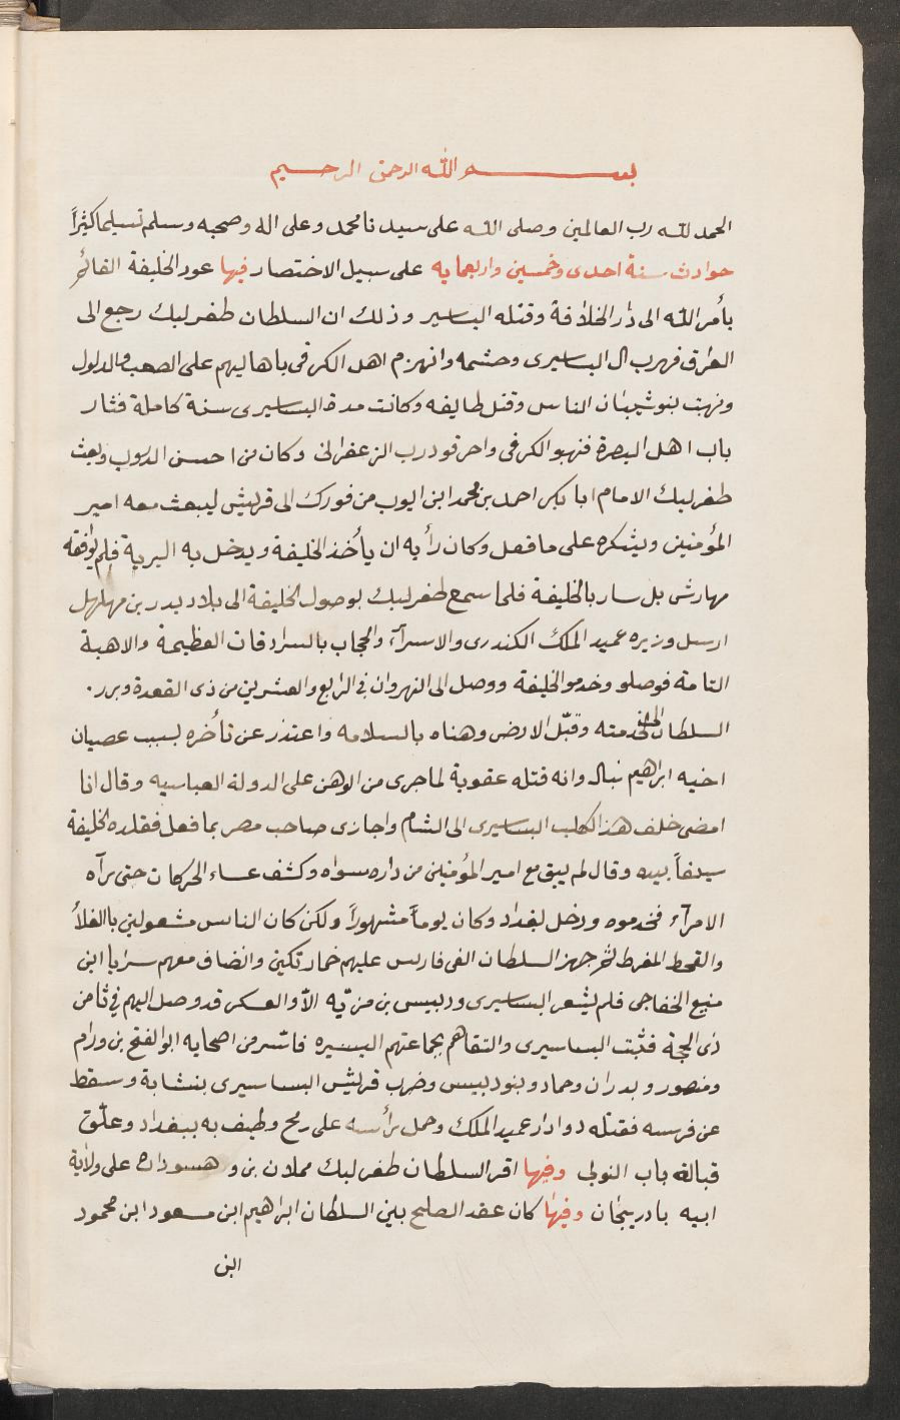 بسم الله الرحمن الرحيم
الحمد لله رب العالمين وصلى الله على سيدنا محمد وعلى اله وصحبه وسلم تسليما كثيراً
حوادث سنة احدى وخمسين واربعمايه على سبيل الاختصار فيها عود الخليفة القائم
بأمر الله الى دار الخلافة وقتله البساسير وذلك ان السلطان طغرلبك رجع الى
العراق فهرب ال البساسيرى وحشمه وانهزم اهل الكرخى باهاليهم على الصعب والدلول
ونهبت بنو شيبان الناس وقتل طايفه وكانت مدة البساسيرى سنة كاملة فثار
باب اهل البصرة فنهبو الكرخى واحرقو درب الزعفرانى وكان من احسن الدروب وبعث
طغرلبك الامام ابا بكر احمد بن محمد ابن ايوب من فورك الى قريش ليبعث معه امير
المؤمنين ويشكره على ما فعل وكان رأيه ان يأخذ الخليفة ويدخل به البرية فلم يوافقه
مهارش بل سار بالخليفة فلما سمع طغرلبك بوصول الخليفة الى بلاد بدر بن مهلهل
ارسل وزيره عميد الملك الكندرى والاسرآء والحجاب بالسرادقات العظيمة والاهبة
التامة فوصلو وخدمو الخليفة ووصل الى النهروان فى الرابع والعشرين من ذى القعدة وبرز
السلطان الى خدمته وقبّل الارض وهناه بالسلامه واعتذر عن تأخره بسبب عصيان
اخيه ابراهيم نيال وانه قتله عقوبة لما جرى من الوهن على الدولة العباسيه وقال انا
امضى خلف هذا الكلب البساسيرى الى الشام واجازى صاحب مصر بما فعل فقلده الخليفة
سيفاً بيده وقال لم يبق مع امير المؤمنين من داره سواه وكشف غساء الحركات حتى يرآه
الامرآء فخدموه ودخل بغداد وكان يوماً مشهوراً ولكن كان الناس مشغولين بالغلأ
والقحط المفرط ثم جهز السلطان الفى فارس عليهم خمارتكين وانضاف معهم سرايا ابن
منيع الخفاجى فلم يشعر البساسيرى ودبيس بن مزيد الا والعسكر قد وصل اليهم فى ثامن
ذى الحجة فثبت البساسيرى والتقاهم بجماعتهم اليسيره فاسر من اصحابه ابو الفتح بن ورام
ومنصور وبدران وحماد وبنو دبيس وضرب قريش البساسيرى بنشابة وسقط
عن فرسه فقتله دوادار عميد الملك وحمل برأسه على رمح وطيف به ببغداد وعلّق
قبالة باب النوبى وفيها اقر السلطان طغرلبك مملان بن وهسودان على ولاية
ابيه بادريبجان وفيها كان عقد الصلح بين السلطان ابراهيم ابن مسعود ابن محمود
ابن